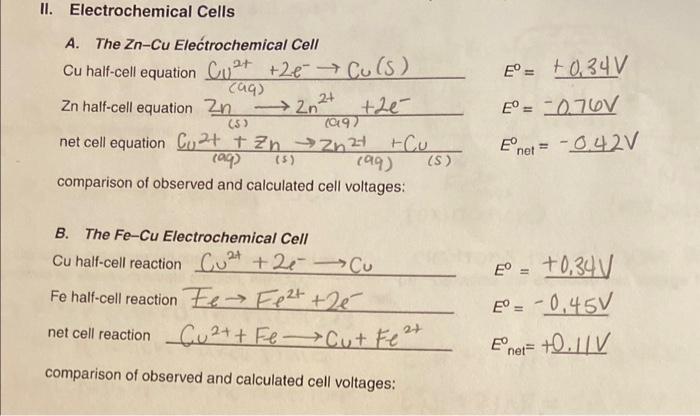 II. Electrochemical Cells
A. The Zn–Cu Electrochemical Cell
Cu half-cell equation Cu²⁺ (aq) + 2e⁻ → Cu(s) E° = +0.34V
Zn half-cell equation Zn (s) → Zn²⁺ (aq) + 2e⁻ E° = -0.76V
net cell equation Cu²⁺ (aq) + Zn (s) → Zn²⁺ (aq) + Cu (s) E°net = -0.42V
comparison of observed and calculated cell voltages:
B. The Fe–Cu Electrochemical Cell
Cu half-cell reaction Cu²⁺ + 2e⁻ → Cu E° = +0.34V
Fe half-cell reaction Fe → Fe²⁺ + 2e⁻ E° = -0.45V
net cell reaction Cu²⁺ + Fe → Cu + Fe²⁺ E°net = +0.11V
comparison of observed and calculated cell voltages: